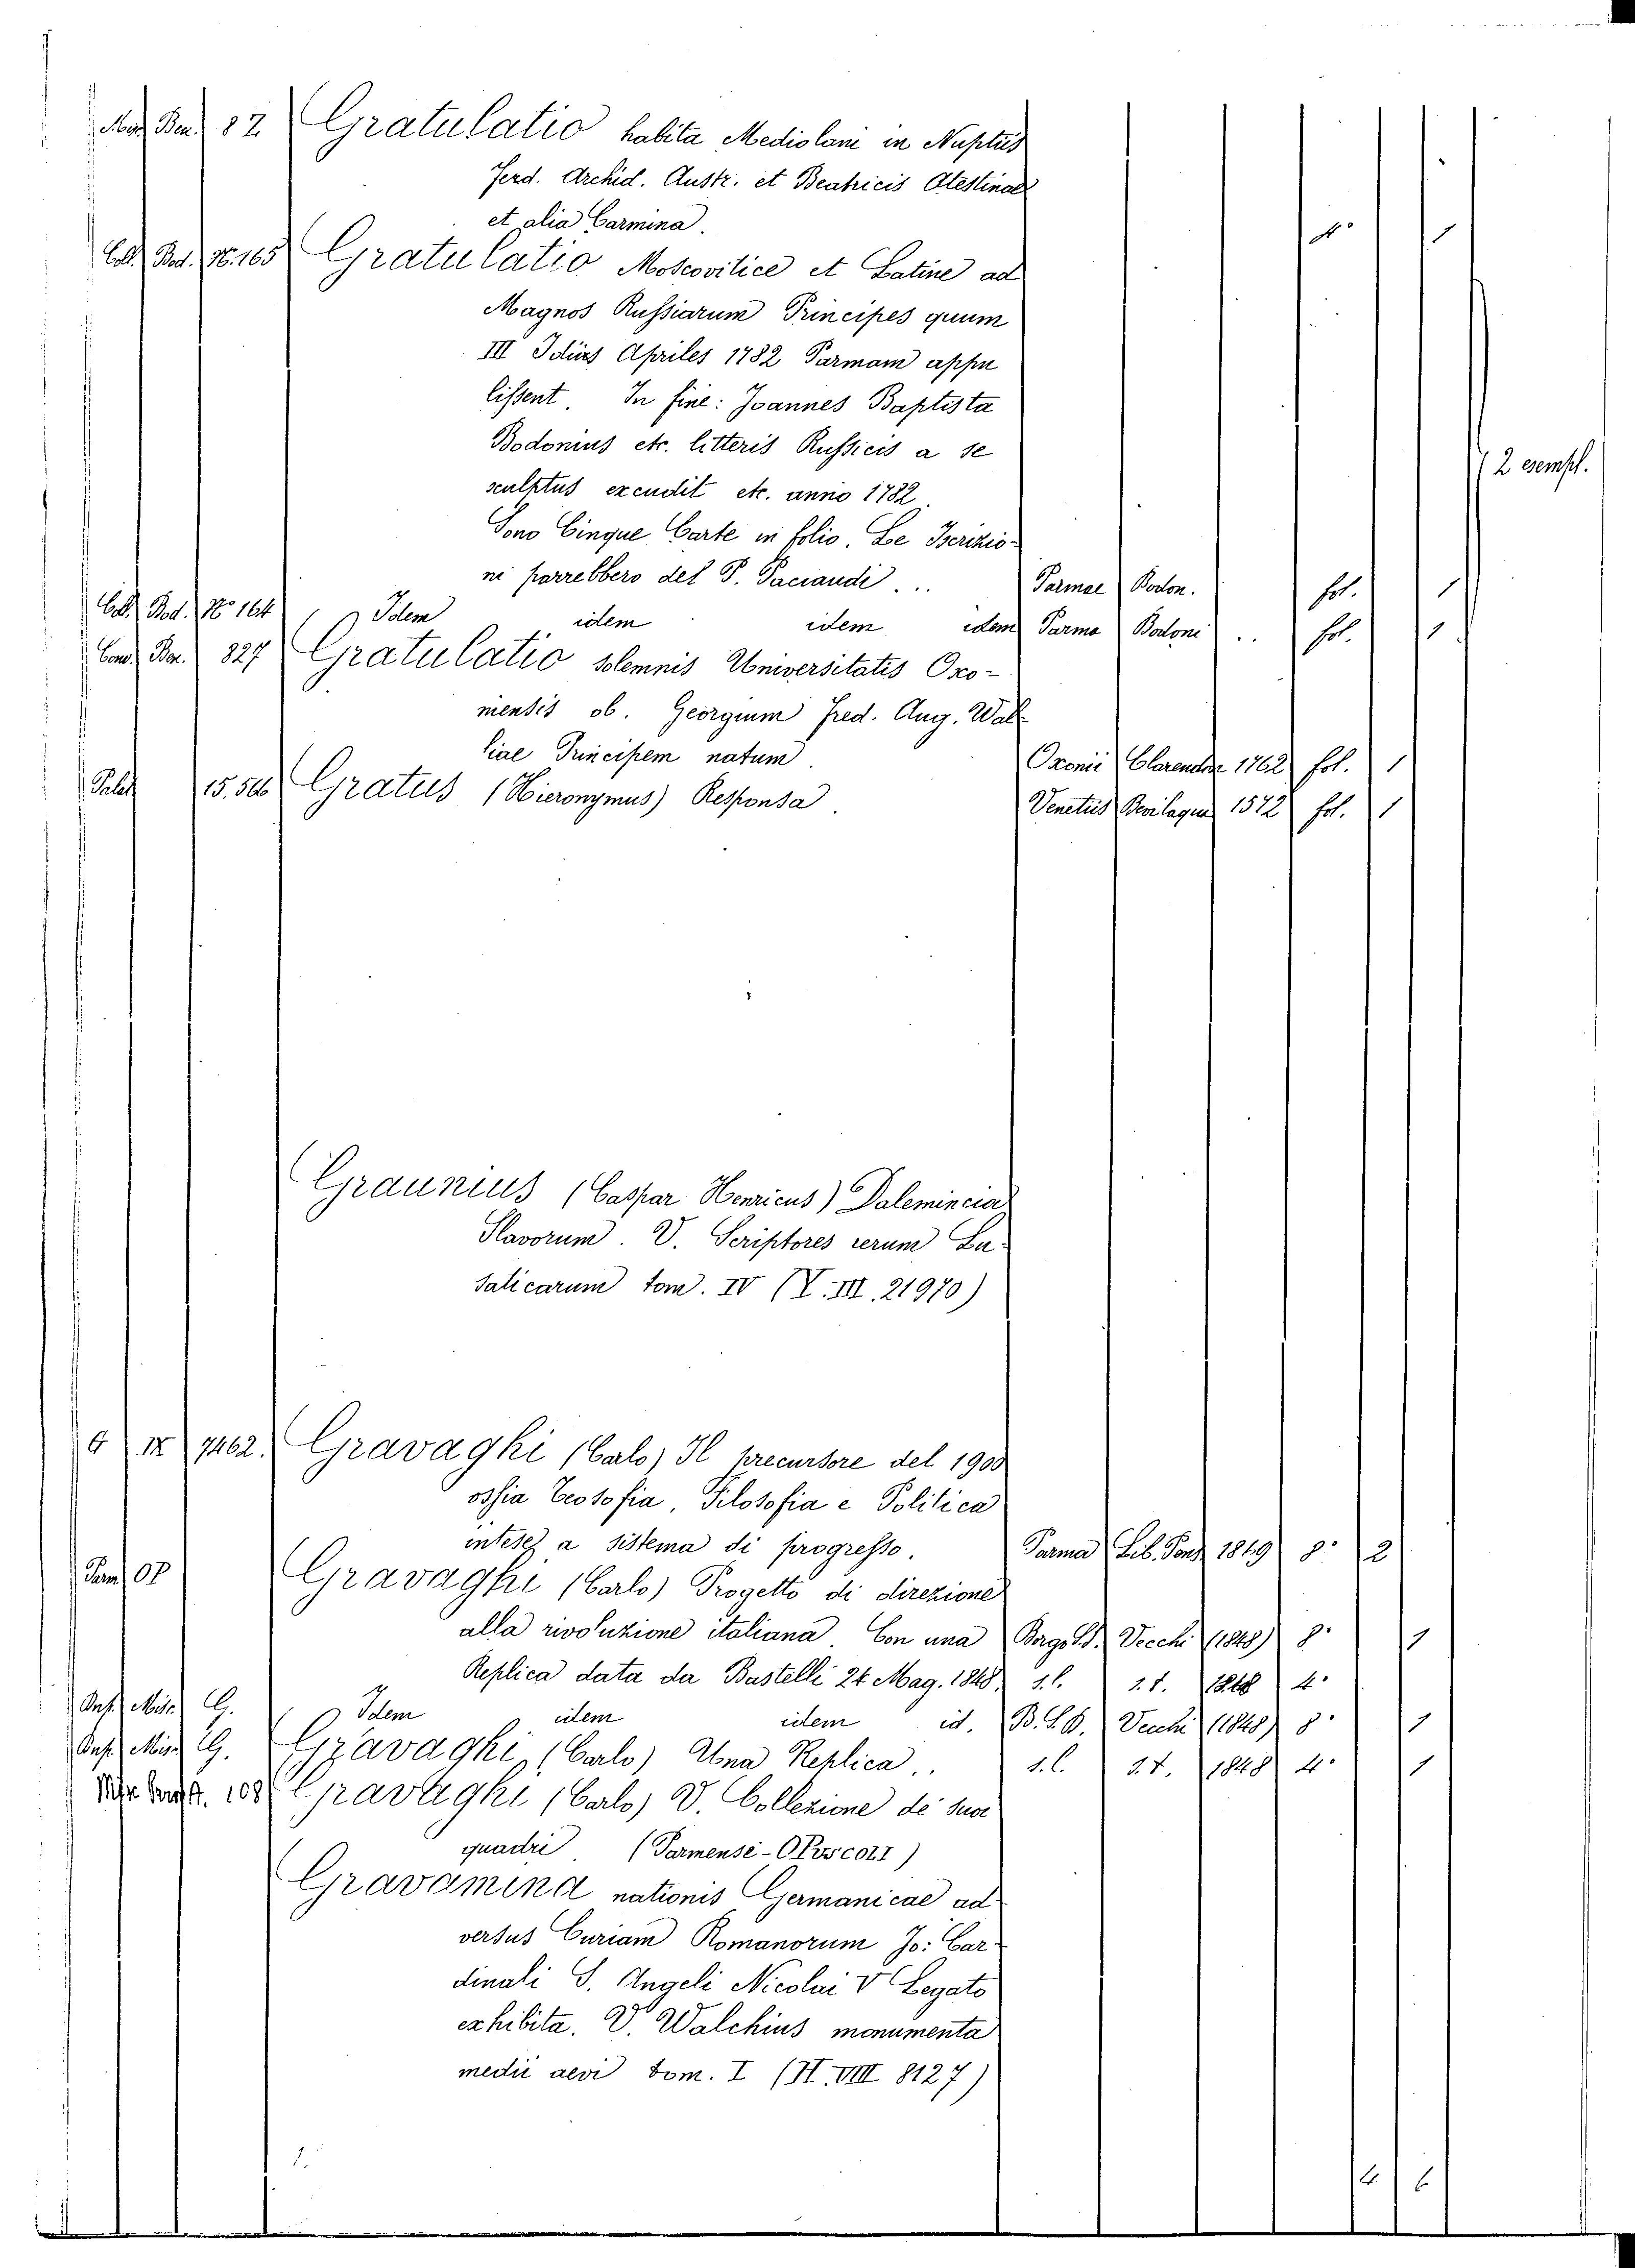 87 Gratulatio habita Mediolani in Nuptiis
Ferd. Archid. Austr. et Beatricis Atestinae
et alia Carmina. 4° 1
Coll. Bod. N. 165 Gratulatio Moscovitice et Latine ad
Magnos Russiarum Principes quum
III Idius Apriles 1782 Parmam appu
lissent. In fine: Joannes Baptista
Bodonius etc. litteris Russicis a se
sculptus excudit etc. anno 1782.
2 esempl.
Sono Cinque Carte in folio. Le Iscrizio-
ni porrebbero del P. Paciaudi ... Parmae Bodon. fol. 1
Coll. Bod. N° 164 Idem idem idem idem Parma Bodoni .. fol. 1
827 Gratulatio solemnis Universitatis Oxo-
niensis ob. Georgium Fred. Aug. Wal
liae Principem natum. Oxonii Clarendon 1762 fol. 1
Palat 15.566 Gratus (Hieronymus) Responsa. Venetiis Bevilaqua 1572 fol. 1
Graunius (Caspar Henricus) Daleminciar
Slavorum. V. Scriptores rerum Lu-
saticarum tom. IV (Y. III. 21970)
G IX 7462. Gravaghi (Carlo) Il precursore del 1900
ossia Teosofia, Filosofia e Politica
intese a sistema di progresso. Parma Lib. 1849 8° 2
Parm Gravaghi (Carlo) Progetto di direzione
alla rivoluzione italiana. Con una Borgo S.D. Vecchi (1848) 8° 1
Replica data da Bastelli 24 Mag. 1848. s.l. s.t. 1848 4°
Misc. G. Idem idem idem id. B.S.D. Vecchi (1848) 8° 1
Misc. G. Gravaghi (Carlo) Una Replica.. s.l. s.t. 1848 4° 1
108 Gravaghi (Carlo) V. Collezione de' suoi
quadri (Parmense-Opuscoli)
Gravamina nationis Germanicae ad
versus Curiam Romanorum Jo: Car
dinali S. Angeli Nicolai V Legato
exhibita. V. Walchius monumenta
medii aevi tom. I (H. VIII 8127)
1.
6 6